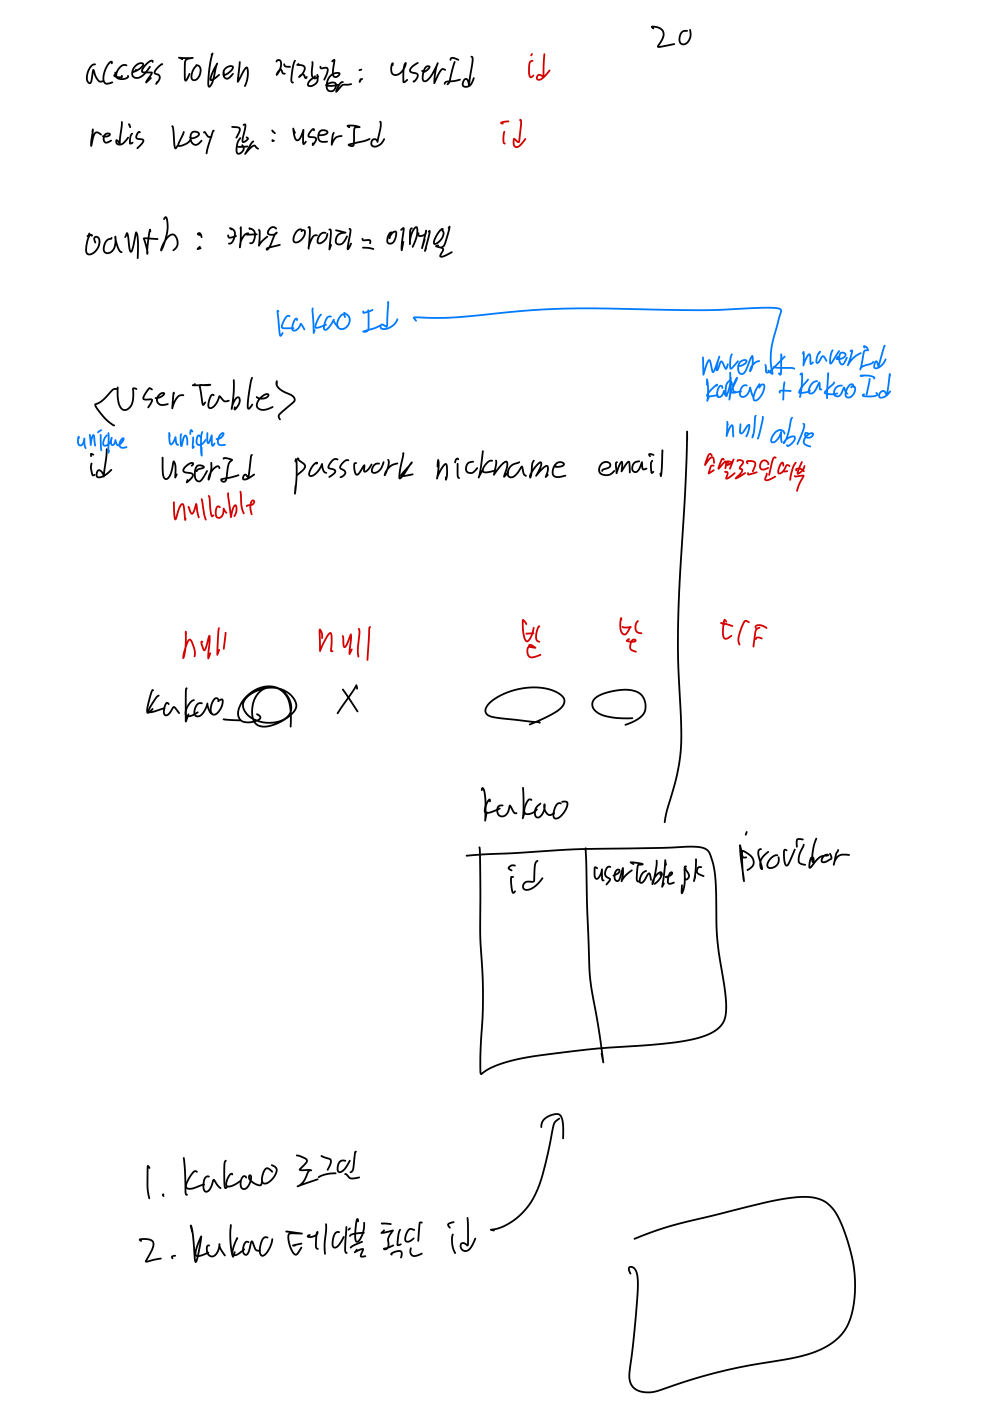 20
access Token 저장값 : userId id
redis key 값 : userId id
oauth : 카카오 아이디 = 이메일
kakao Id
naver + naverId
kakao + kakao Id
<User Table>
null able
unique unique
id userId passwork nickname email 소셜로그인여부
nullable
null null 본 본 t/F
kakao_ X
kakao
id userTable pk providor
1. kakao 로그인
2. kakao 테이블 확인 id